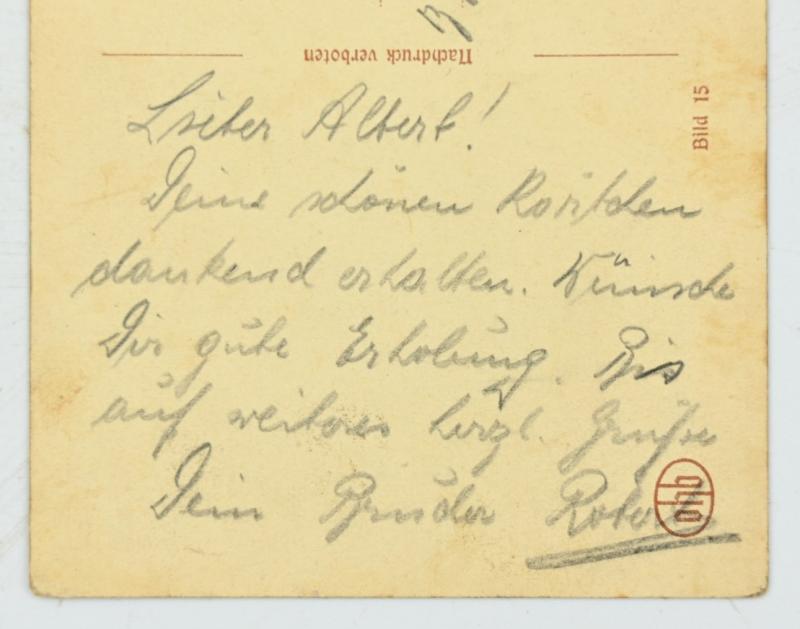 Nachdruck verboten
Bild 15
Lieber Albert!
Deine schönen
dankend erhalten. Wünsche
Dir gute Erholung. Bis
auf weiteres herzl. Grüße
Dein Bruder Robert